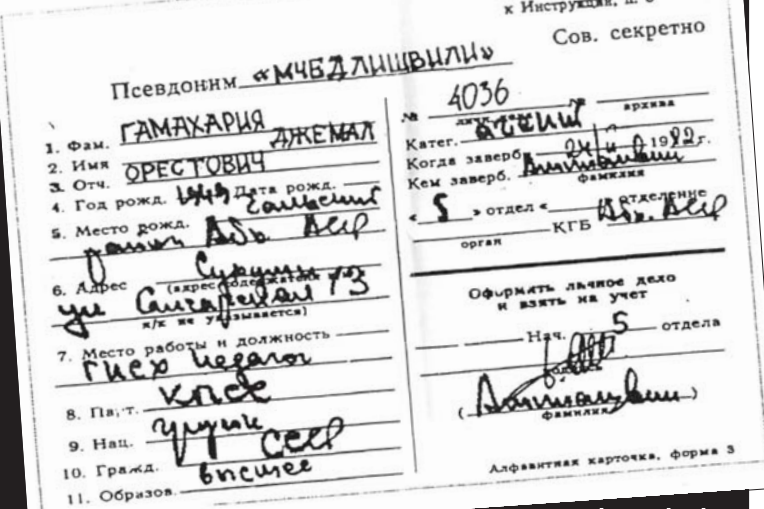 к Инструкции, п.
Сов. секретно
Псевдоним «МЧЕДЛИШВИЛИ»
1. Фам. ГАМАХАРИЯ
2. Имя ДЖЕМАЛ
3. Отч. ОРЕСТОВИЧ
4. Год рожд. 1949 Дата рожд.
5. Место рожд. Гальский
район Абх АССР
6. Адрес Сухуми
(адрес содержателя
ул 73
я/к не указывается)
7. Место работы и должность
педагог
8. Парт. КПСС
9. Нац. грузин
10. Гражд. СССР
11. Образов. высшее
№ 4036 №
личн. дела архива
Катег. агент
Когда заверб. 24/ 1982 г.
Кем заверб.
фамилия
« 5 » отдел « отделение
КГБ Абх. АССР
орган
Оформить личное дело
и взять на учет
Нач. 5 отдела
( )
фамилия
Алфавитная карточка, форма 3